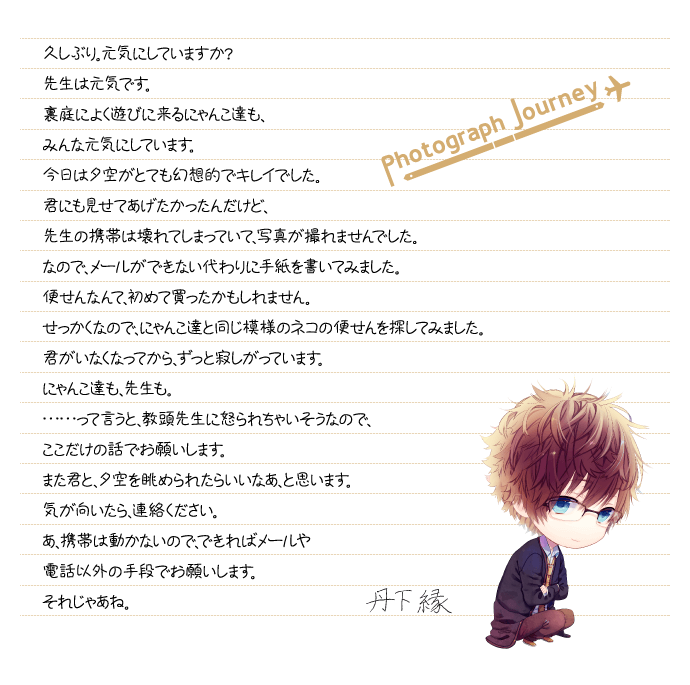 久しぶり。元気にしていますか?
先生は元気です。
裏庭によく遊びに来るにゃんこ達も、
みんな元気にしています。
今日は夕空がとても幻想的でキレイでした。
君にも見せてあげたかったんだけど、
先生の携帯は壊れてしまっていて、写真が撮れませんでした。
なので、メールができない代わりに手紙を書いてみました。
便せんなんて、初めて買ったかもしれません。
せっかくなので、にゃんこ達と同じ模様のネコの便せんを探してみました。
君がいなくなってから、ずっと寂しがっています。
にゃんこ達も、先生も。
……って言うと、教頭先生に怒られちゃいそうなので、
ここだけの話でお願いします。
また君と、夕空を眺められたらいいなあ、と思います。
気が向いたら、連絡ください。
あ、携帯は動かないので、できればメールや
電話以外の手段でお願いします。
それじゃあね。
丹下 縁
Photograph Journey